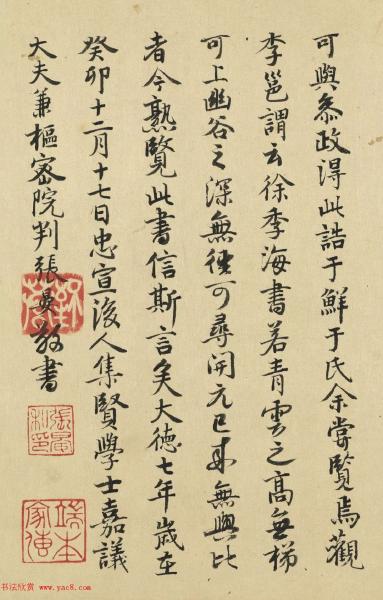 可與參政得此誥于鮮于氏余嘗覽焉觀
李邕謂云徐季海書若青雲之高無梯
可上幽谷之深無徑可尋開元已來無與比
者今熟覽此書信斯言矣大德七年歲在
癸卯十二月十七日忠宣後人集賢學士嘉議
大夫兼樞密院判張晏敬書
端本
家傳
书法欣赏 www.yac8.com